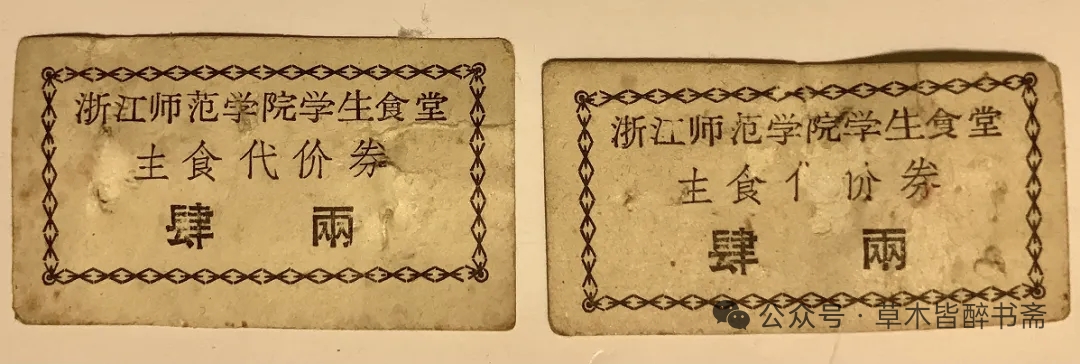 浙江师范学院学生食堂
主食代价券
肆 兩
浙江师范学院学生食堂
主食代价券
肆 兩
公众号·草木皆醉书斋